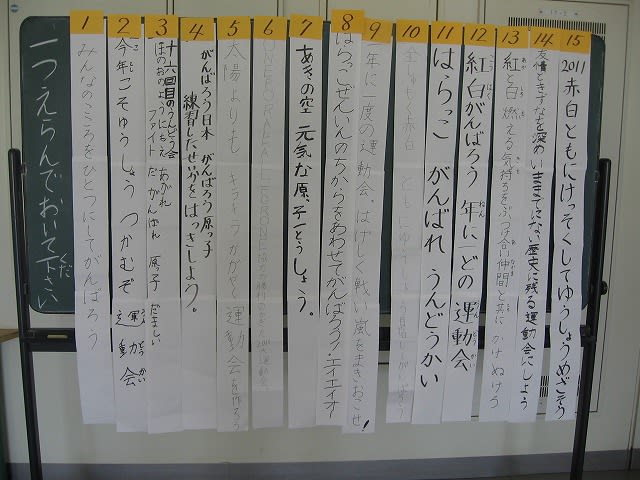 一つえらんでおいて下さい
くだ
1
みんなのこころをひとつにしてがんばろう
2
今年こそゆうしょう つかむぞ 運動会
3
十六回目のうんどう会
ほのおのようにもえあがれ
ファイトだ がんばれ 原っ子 だましい
4
がんばろう日本 がんばろう原っ子
練習したせいかをはっきしよう。
5
太陽よりも キラキラかがやく 運動会を作ろう
6
ONE FOR ALL
7
あきの空 元気な原っ子
8
はらっこぜんいんのちからをあわせてがんばろう!エイエイオー
9
一年に一度の運動会、はげしく戦い嵐をまきおこせ!
10
全しゅう 赤白
11
はらっこ がんばれ うんどうかい
12
紅白がんばろう 年に一どの運動会
13
紅と白 燃える気持ちをぶつけ合い仲間と共に かけぬけろ
14
友情ときずなを深めいままでにない歴史に残る運動会にしよう
15
2011 赤白ともにけっそくしてゆうしょうめざそう